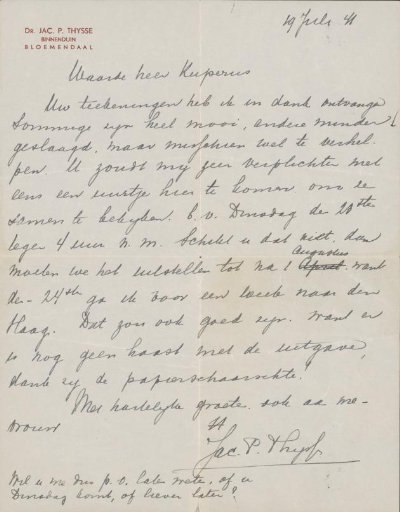 DR. JAC. P. THYSSE
BINNENDUIN
BLOEMENDAAL
19 Juli 41
Waarde heer Kuiperus
Uw teekeningen heb ik in dank ontvangen
Sommige zijn heel mooi, andere minder
geslaagd, maar misschien wel te verhel-
pen. U zoudt mij zeer verplichten met
eens een uurtje hier te komen om ze
samen te bekijken. b.v. Dinsdag de
tegen 4 uur n.m. Schikt u dat niet, dan
moeten we het uitstellen tot na 1 Augustus want
den 24ste ga ik voor een week naar den
Haag. Dat zou ook goed zijn. want er
is nog geen haast met de uitgave,
dank zij de papierschaarschte!
Met hartelijke groete. ook aan me-
vrouw
Jac. P. Thysse
Wil u me dus p.o. laten weten, of u
Dinsdag komt, of liever later?